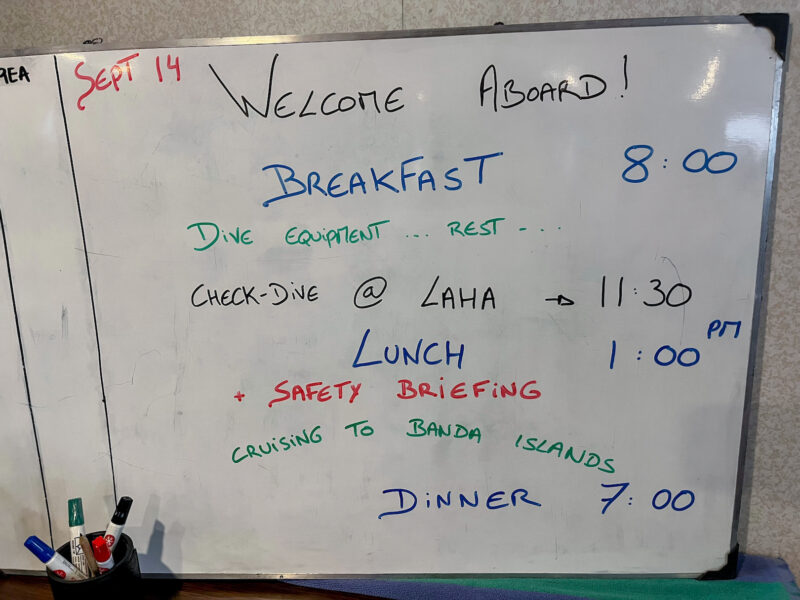 SEPT 14
WELCOME ABOARD!
BREAKFAST 8:00
DIVE EQUIPMENT ... REST - . .
CHECK-DIVE @ LAHA → 11:30
LUNCH 1:00 PM
+ SAFETY BRIEFING
CRUISING TO BANDA ISLANDS
DINNER 7:00